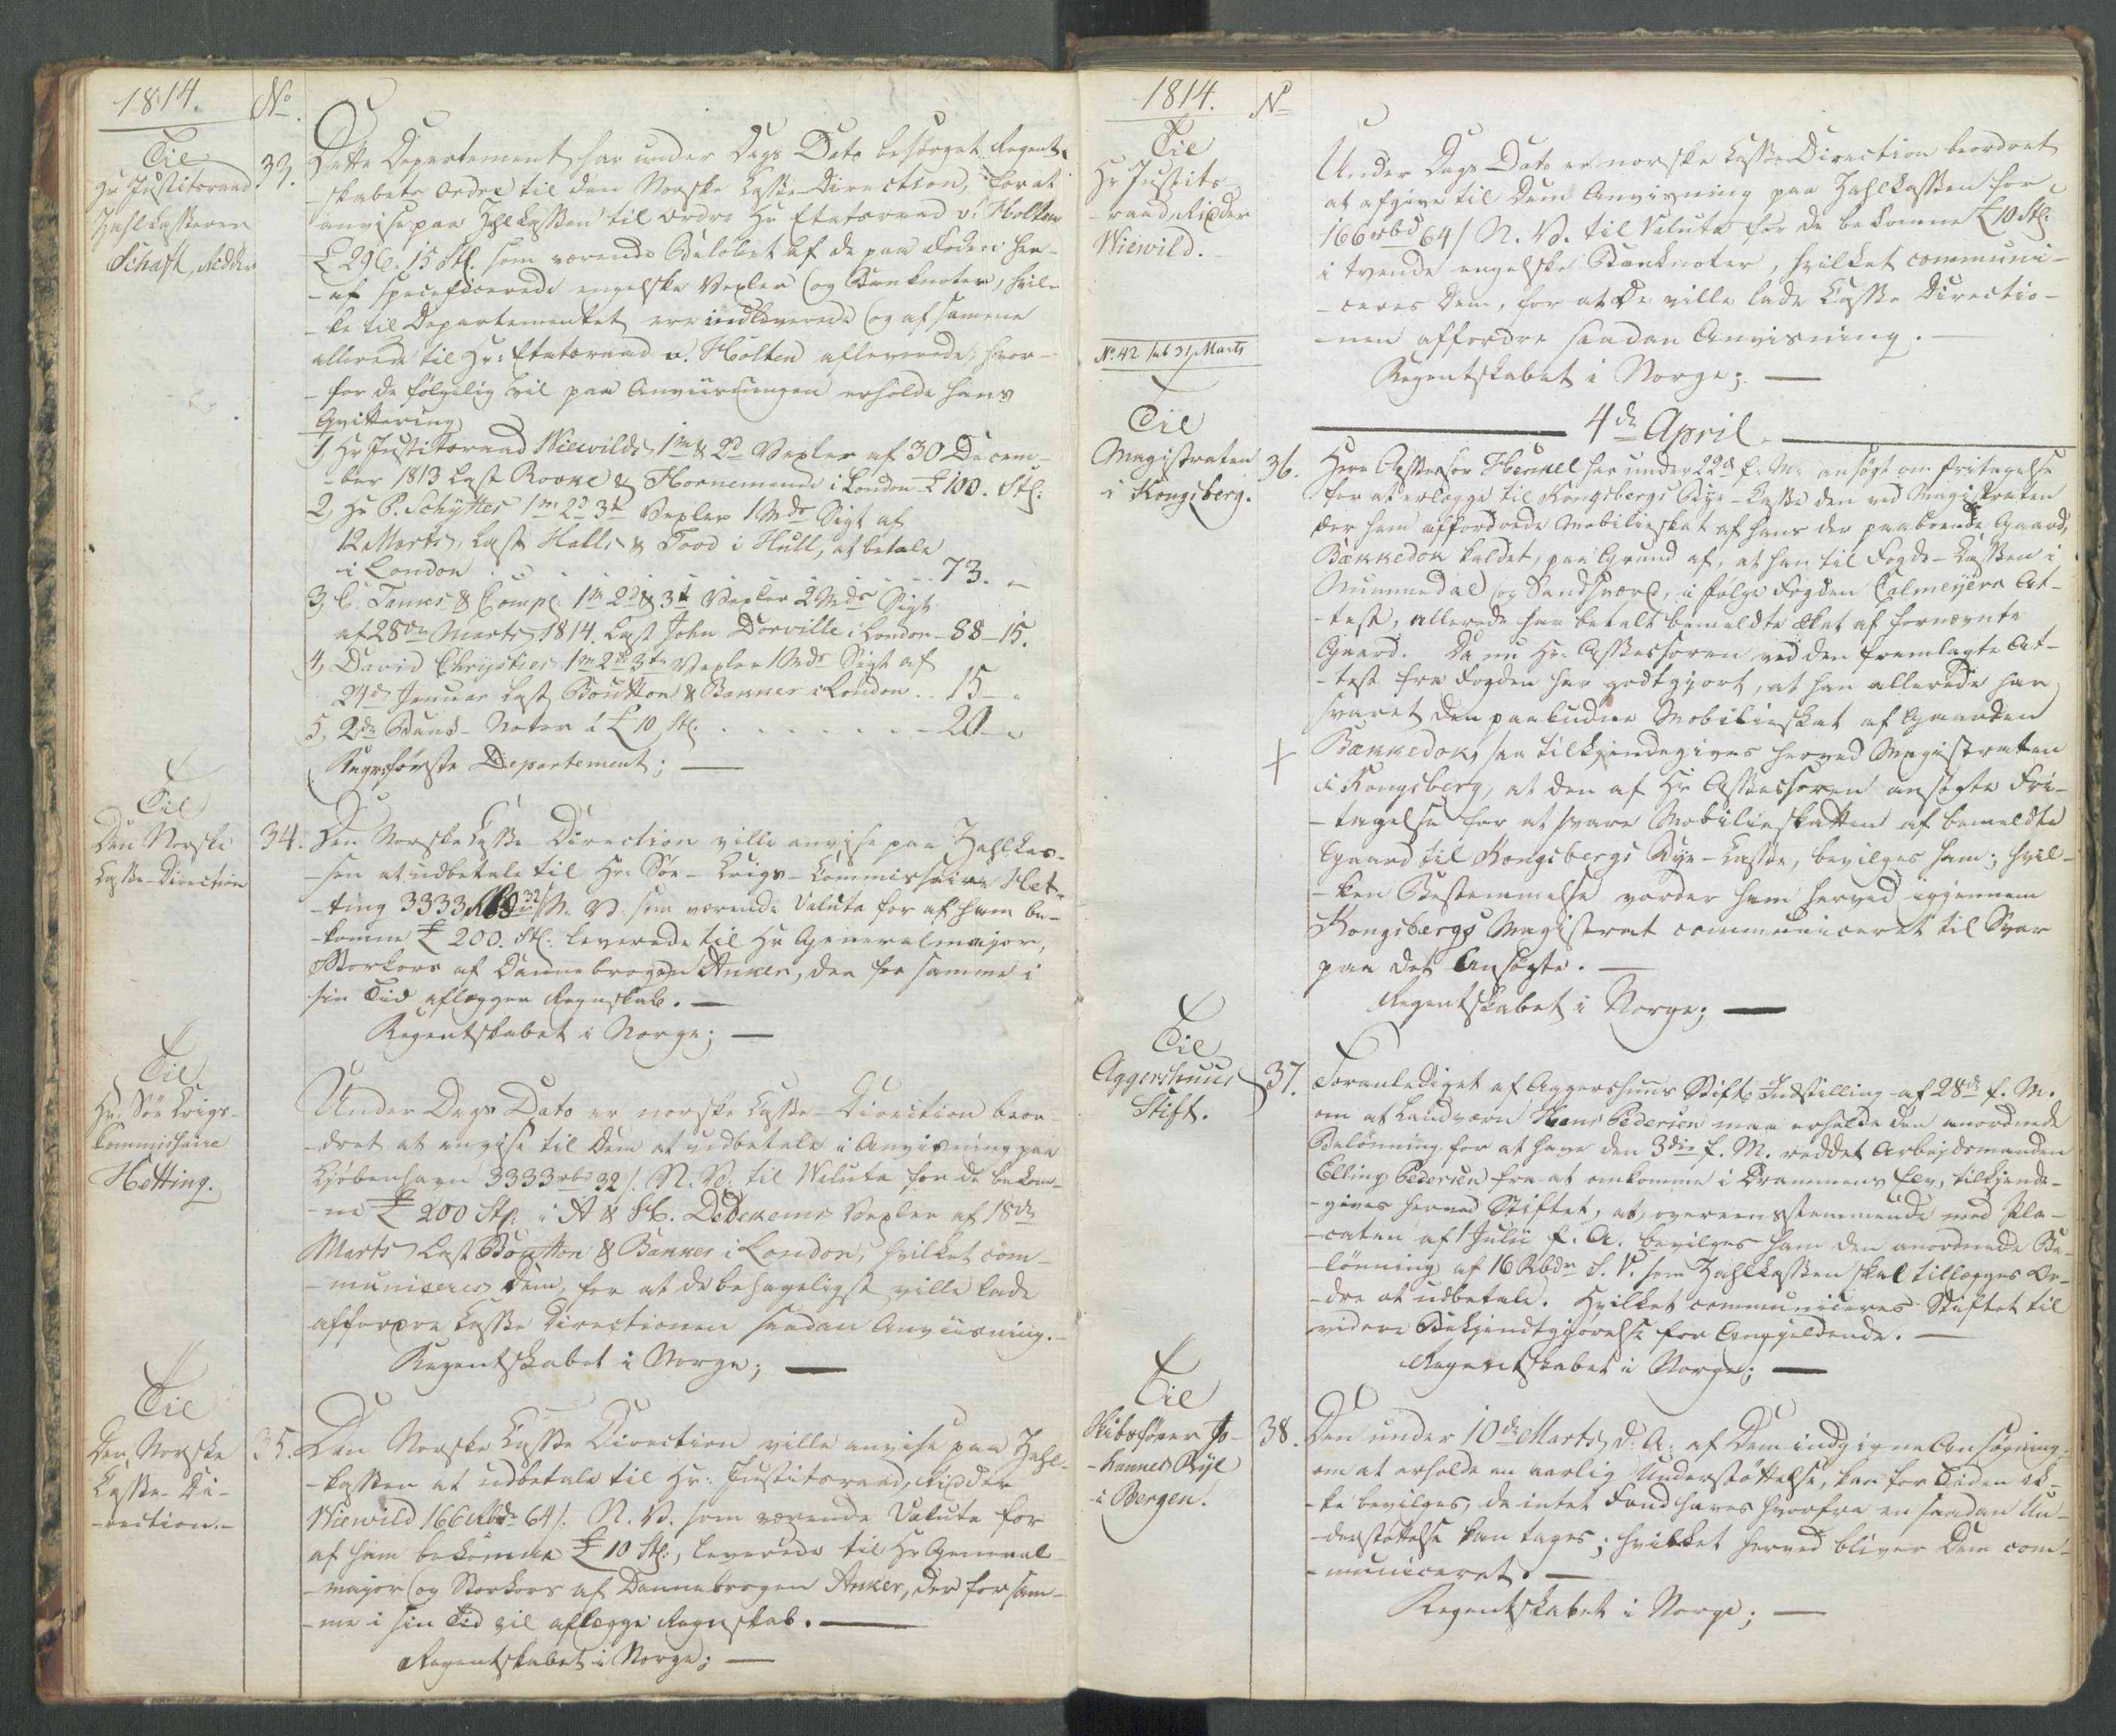 1814.
No.
Til
Hr Justitsraad
Zahlkasserer
Schaft, Ridder
33.
Dette Departement har under Dags Dato besørget Regent-
-skabets Ordre til den Norske Casse-Direction, for at
anvise paa Zahlkassen til Ordre Hr Etatsraad v. Holten
£ 296. 15 Stl. som værende Beløbet af de paa Foden her-
-af specificerede engelske Vexler og Banknoter, hvil-
-ke til Departementet ere indleverede og af samme
allerede til Hr: Etatsraad v. Holten afleverede, hvor-
-for de følgelig vil paa Anviisningen erholde hans
Qvittering
1, Hr Justitsraad Wiewilds 1m & 2d Vexler af 30 Decem-
-ber 1813 Last Rooke & Hornemann i London £ 100. Stl:
2, Hr P. Schyttes 1m 2d 3t Vexler 1 Mdr Sigt af
12 Marts, Last Halls & Tood i Hull, at betale
i London . . . . . . . . 73. "
3, C. Tanks & Compe. 1m 2d & 3t Vexler 2 Mdr Sigt
af 28de Marts 1814. Last John Dorville i London - 88 - 15.
4, David Chrysties 1m 2d 3te Vexler 1 Mdr Sigt af
24de Januar Last Boutton & Banker i London . . 15 - "
5, 2de Bank-Noter á £ 10 Stl. . . . . . . . - 20 - "
Departement; —
Til
Den Norske
Casse-Direction
34.
Den Norske Casse-Direction ville anvise paa Zahlkas-
-sen at udbetale til Hr: Søe-Krigs-Commissaire Het-
-ting 3333 32/ N. V. som værende Valuta for af ham be-
-komne £ 200. Stl: leverede til Hr Generalmajor,
Storkors af Dannebrogen Anker, der for samme i
sin Tid aflægger Regnskab. —
Regentskabet i Norge; —
Til
Hr: Søe Krigs-
Commissaire
Hetting.
Under Dags Dato er norske Casse-Direction beor-
-dret at anvise til Dem at udbetale i Anvisning paa
Kjøbenhavn 3333 rbd 32/. N. V. til Valuta for de bekom-
-ne £ 200 Stl: i A & H. Dedekams Vexler af 18de
Marts Last Boutton & Banker i London, hvilket com-
-municeres Dem, for at de behageligst ville lade
affordre Casse Directionen saadan Anviisning. -
Regentskabet i Norge; —
Til
Den Norske
Casse-Di-
-rection. -
35.
Den Norske Casse Direction ville anvise paa Zahl-
-kassen at udbetale til Hr: Justitsraad, Ridder
Wiewild 166 Rbdr 64/. N. V. som værende Valuta for
af ham bekomne £ 10 Stl:, leverede til Hr General-
-major og Storkors af Dannebrogen Anker, der for sam-
-me i sin Tid vil aflægge Regnskab. —
Regentskabet i Norge; —
1814.
No
Til
Hr Justits-
-raad, Ridder
Wiewild. -
Under Dags Dato er norske Casse-Direction beordret
at afgive til Dem Anvisning paa Zahlkassen for
166 rbd 64/ N. V. til Valuta for de bekomne £ 10 Stl:
i tvende engelske Banknoter, hvilket communi-
-ceres Dem, for at De ville lade Casse Directio-
-nen affordre saadan Anvisning. —
Regentskabet i Norge; —
No. 42 sub 31 Marts
4de April
Til
Magistraten
i Kongsberg.
36.
Herr Assessor Henkel har under 22d f. M. ansøgt om Fritagelse
for at erlægge til Kongsbergs Bye-Casse den ved Magistraten
der ham affordrede Mobilieskat af hans der paaboende Gaard,
Bækkedok kaldet, paa Grund af, at han til Fogd-Cassen i
Nummedal og Sandsværd, i følge Fogden Colmeyers At-
-test, allerede har betalt bemeldte Skat af fornævnte
Gaard. Da nu Hr: Assessoren ved den fremlagte At-
-test fra Fogden har godtgjort, at han allerede har
svaret den paabudne Mobilieskat af Gaarden
Bækkedok, saa tilkjendegives herved Magistraten
i Kongsberg, at den af Hr Assessoren ansøgte Fri-
-tagelse for at svare Mobilieskatten af bemeldte
Gaard til Kongsbergs Bye-Casse, bevilges ham; hvil-
-ken Bestemmelse vorder ham herved igjennem
Kongsbergs Magistrat communiceret til Svar
paa det Ansøgte. —
Regentskabet i Norge; —
Til
Aggershuus
Stift.
37.
Foranlediget af Aggershuus Stifts Indstilling af 28de f. M.
om at Landværn Hans Pedersen maa erholde den anordnede
Belønning for at have den 3die f. M. reddet Arbejdsmanden
Elling Pedersen fra at omkomme i Drammens Elv, tilkjende-
-gives herved Stiftet, at, overeensstemmende med Pla-
-caten af 1 Julii f. A. bevilges ham den anordnede Be-
-lønning af 16 Rbdr S. V. som Zahlkassen skal tillægges Or-
-dre at udbetale. Hvilket communiceres Stiftet til
videre Bekjendtgjørelse for Angjeldende. —
Regentskabet i Norge; —
Til
Skibsfører Jo-
-hannes Bÿe
i Bergen.
38.
Den under 10de Marts d: A: af Dem indgivne Ansøgning,
om at erholde en aarlig Understøttelse, kan for Tiden ik-
-ke bevilges, da intet Fond haves hvorfra en saadan Un-
-derstøttelse kan tages; hvilket herved bliver Dem com-
-municeret. —
Regentskabet i Norge; —